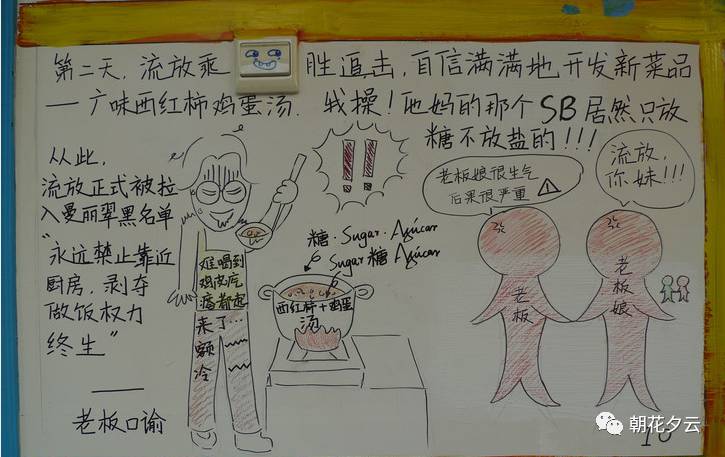 第二天,流放乘胜追击,自信满满地开发新菜品
—广味西红柿鸡蛋汤.我操!他妈的那个SB居然只放
糖不放盐的!!!
从此,
流放正式被拉
入曼丽翠黑名单
"永远禁止靠近
厨房,剥夺
做饭权力
终生"
——
老板口谕
难喝到
鸡皮疙
瘩都起
来了…
额
冷
!!
糖·Sugar·Azúcar
Sugar糖Azúcar
西红柿+鸡蛋
汤
老板娘很生气
后果很严重 !
流放,
你妹!!!
老板
老板娘
朝花夕云